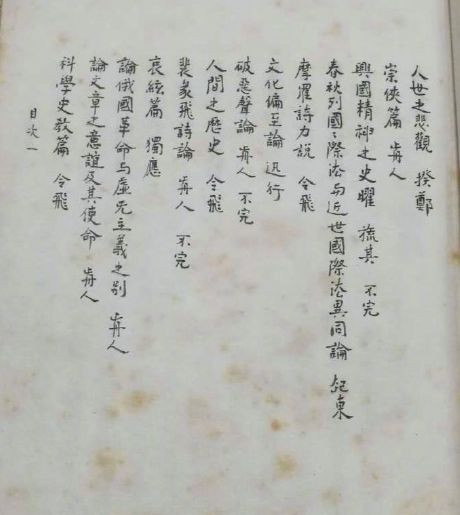 人世之悲觀 揆鄭
崇俠篇 歬人
興國精神之史曜 旒其 不完
春秋列國〻際法与近世國際法異同論 起東
摩羅詩力説 令飛
文化偏至論 迅行
破惡聲論 歬人 不完
人間之歷史 令飛
裴彖飛詩論 歬人 不完
哀絃篇 獨應
論俄國革命与虛无主義之別 歬人
論文章之意誼及其使命 歬人
科學史教篇 令飛
目次一